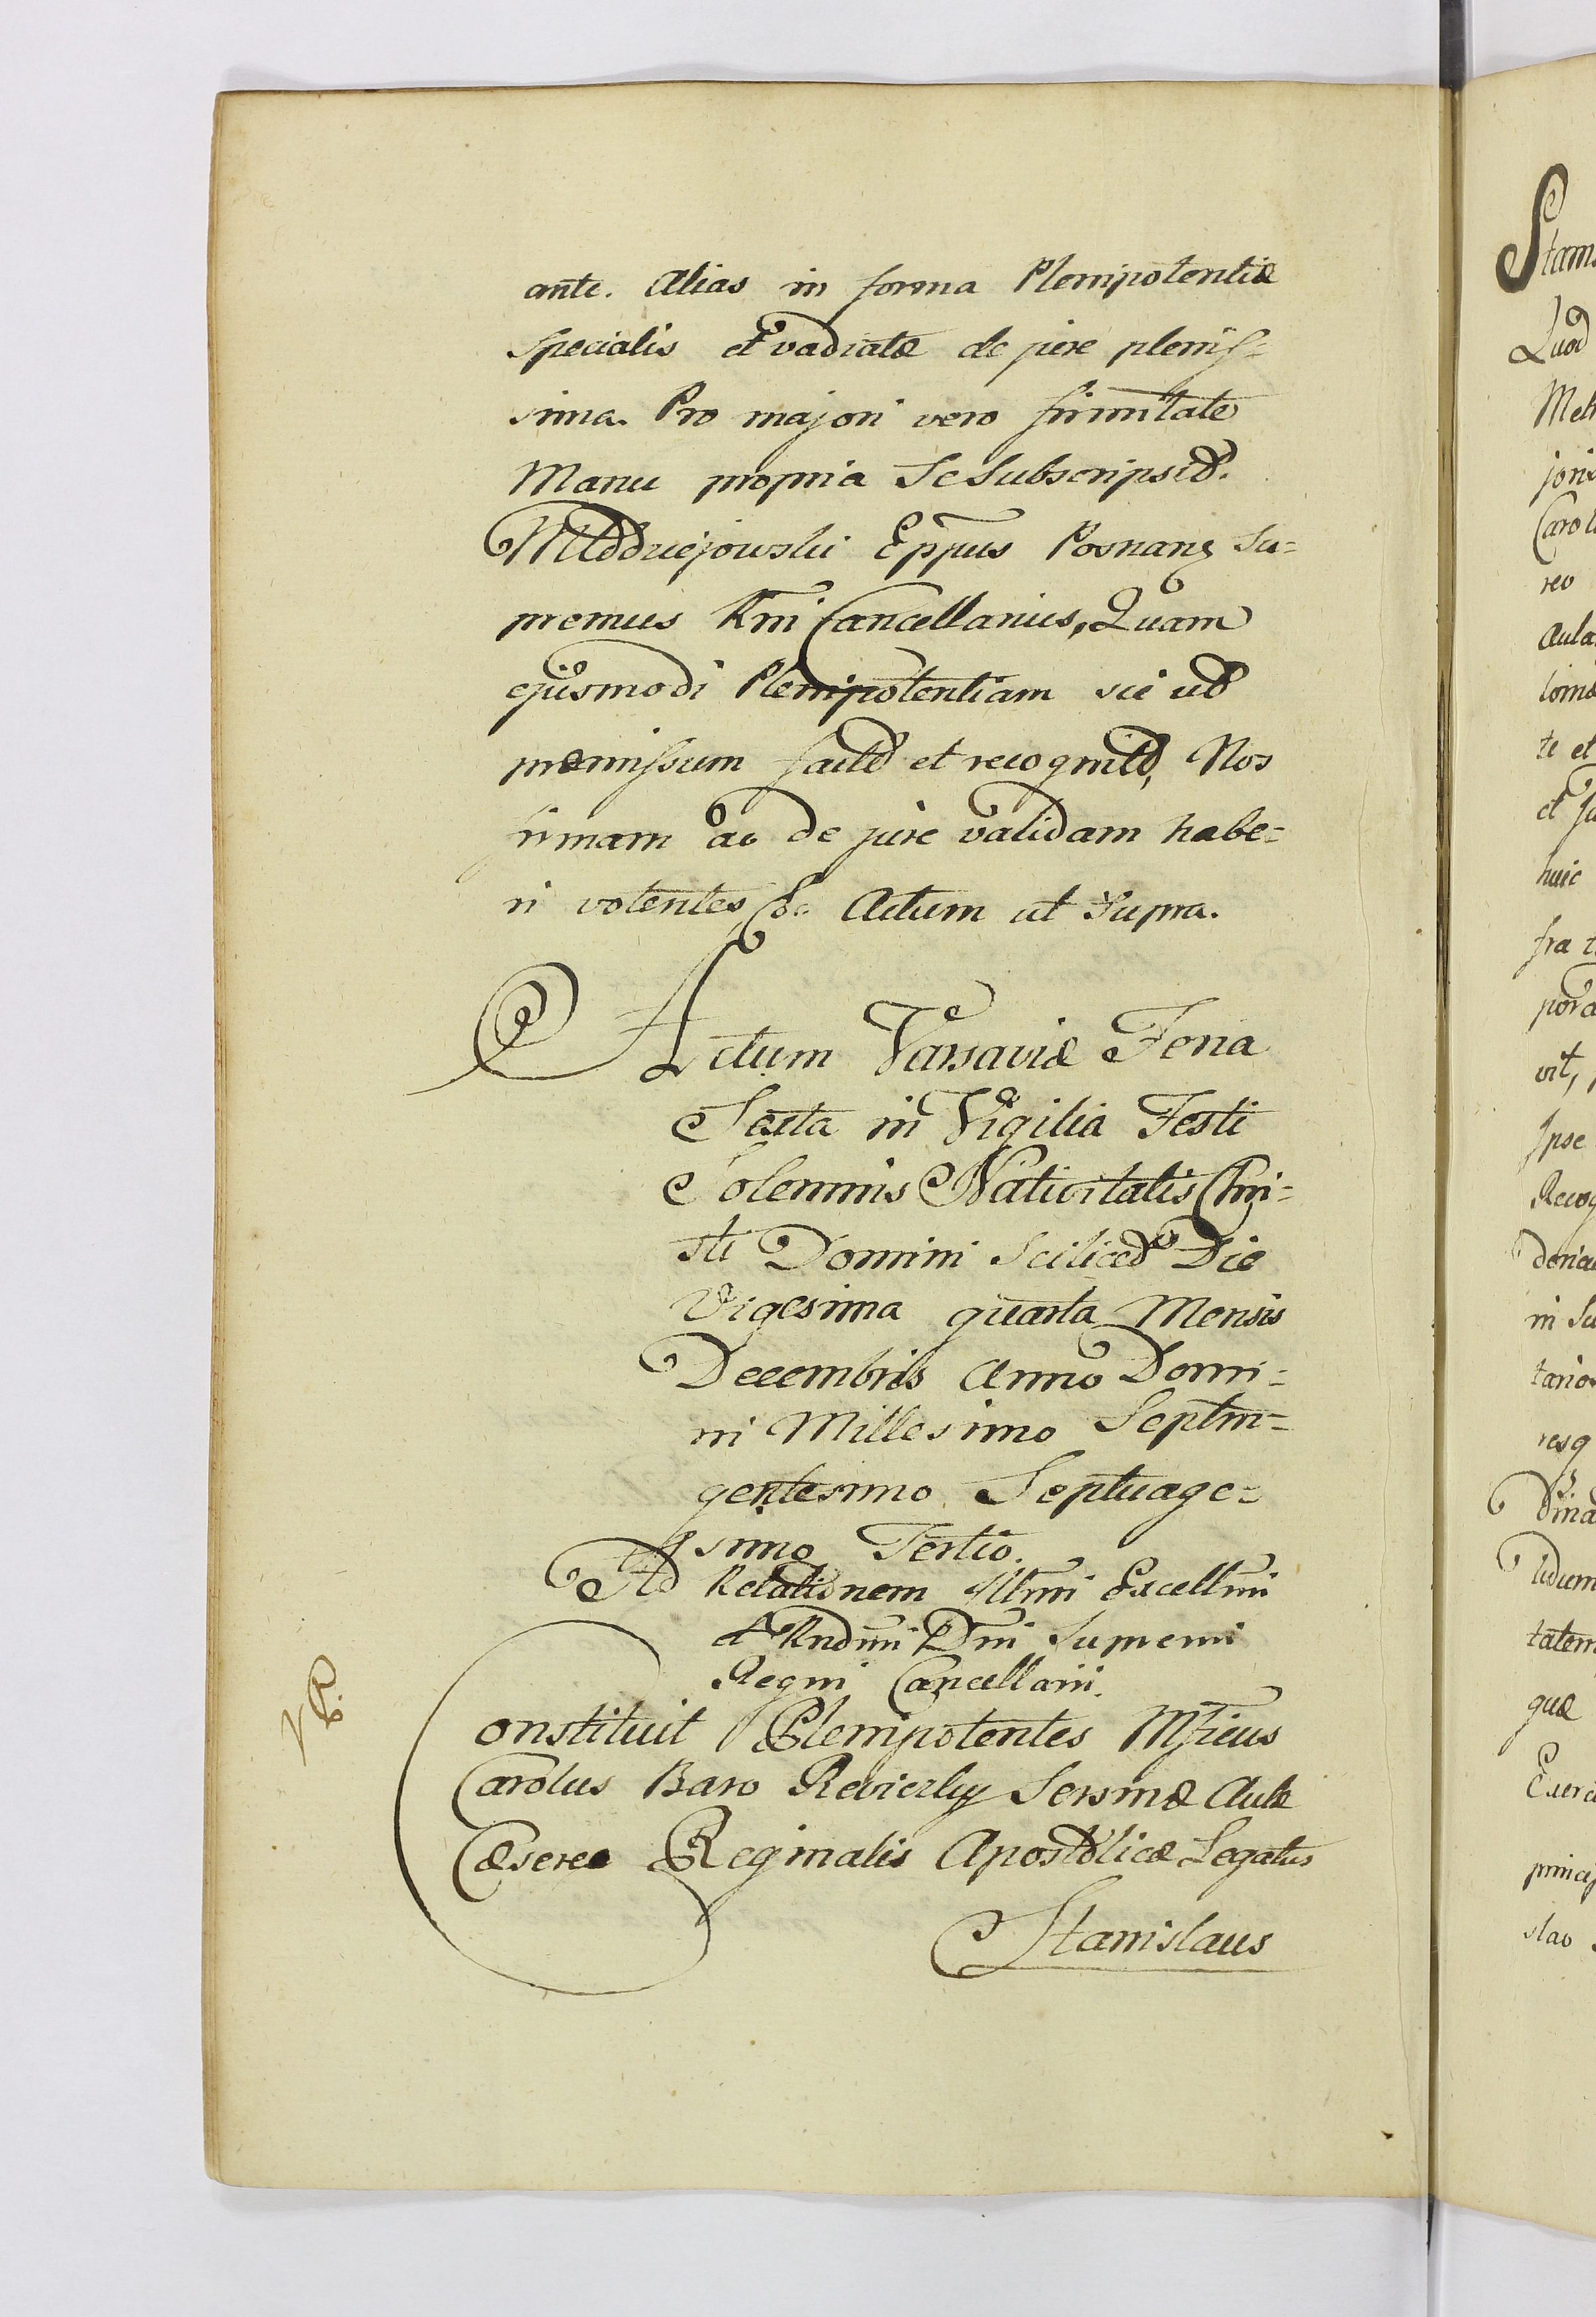 ante. Alias in forma Plenipotentiæ
specialis et vadiatæ de jure plenis-
sima. Pro majori vero firmitate
Manu propria Se Subscripsit.
Młodziejowski Eppus Posnanẜ Su=
premus Rni Cancellarius, Quam
ejusmodi Plenipotentiam sic ut
præmissum factā et recognitā, Nos
firmam ac de jure validam habe=
ri volentes, &c Actum ut Supra.
Actum Varsaviæ Feria
Sexta in Vigilia Festi
Solemnis Nativitatis Chri=
sti Domini Scilicet Die
Vigesima quarta Mensis
Decembris Anno Domi=
ni Millesimo Septin=
gentesimo Septuage=
simo Tertio.
Ad Relationem Illmi Excellmi
et Rndmi Dni Supremi
Regni Cancellarii.
Constituit Plenipotentes Mficus
Carolus Baro Reviczky Sersmæ Aulæ
Cæsereo Reginalis Apostolicæ Legatus
Stanislaus
Stanis
Quod
joris
Carol
reo
Aula
te et
et
huic
fra
vit,
Ipse
Recog
in Su
tario
resq
tatem
quæ
Exerci
princip
slao